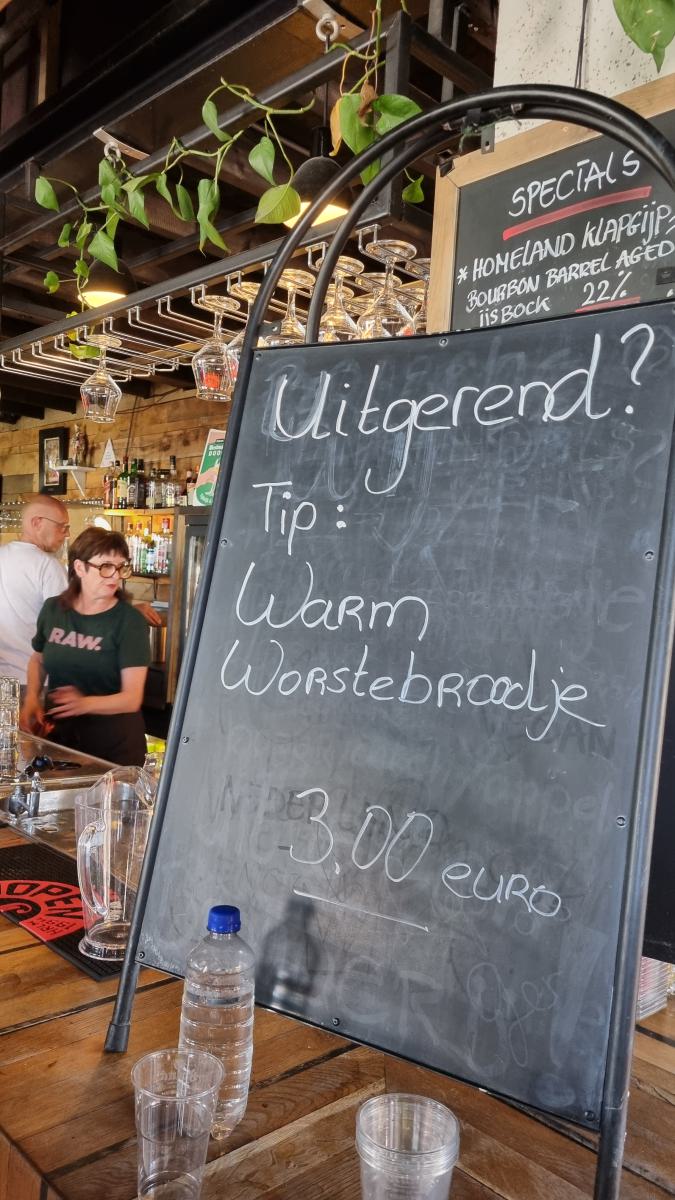 SPECIALS
* HOMELAND KLAPGIJP
BOURBON BARREL AGED
IJSBOCK 22%
Uitgerend?
Tip:
Warm
Worstebroodje
3.00 euro
RAW.
OPEN